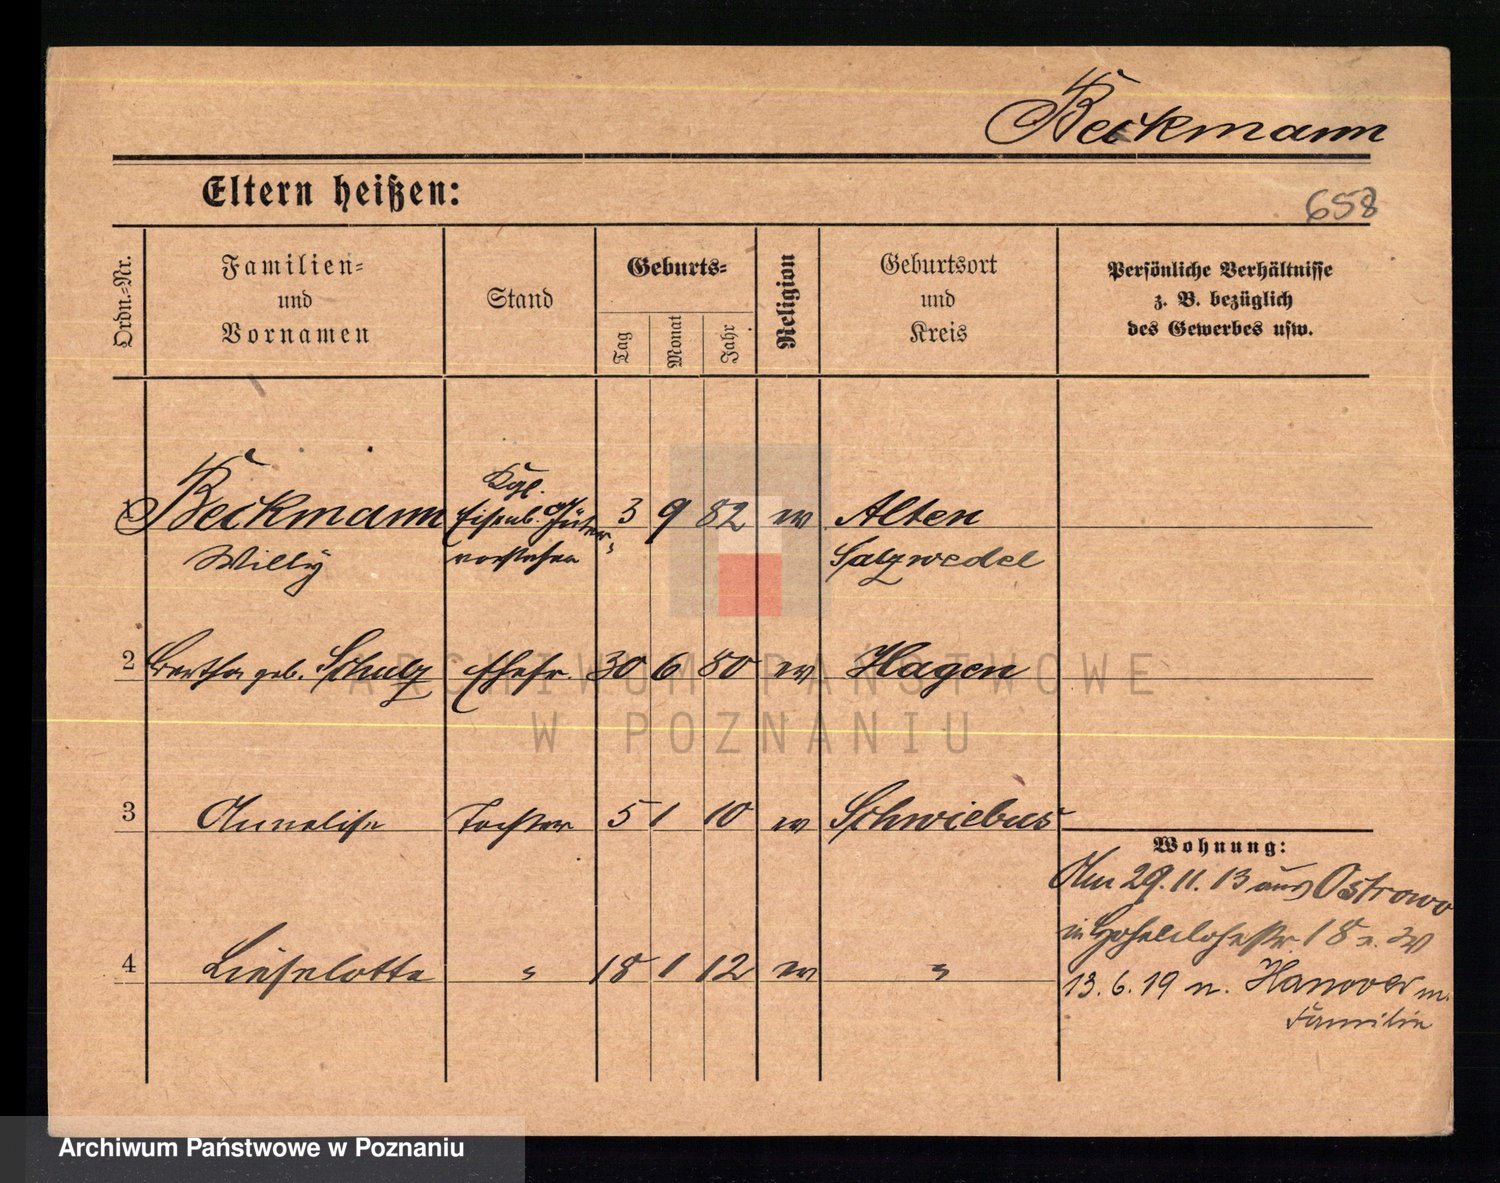 Beckmann
Eltern heißen:
658
Ordn.-Nr.
Familien-
und
Vornamen
Stand
Geburts-
Tag
Monat
Jahr
Religion
Geburtsort
und
Kreis
Persönliche Verhältnisse
z. B. bezüglich
des Gewerbes usw.
1 Beckmann Kgl. Eisenb. Güter- 3 9 82 ev Alten
Willy vorsteher Salzwedel
2 Bertha geb. Schulz Ehefr. 30 6 80 ev Hagen
3 Annelise Tochter 5 1 10 ev Schwiebus
4 Lieselotte " 18 1 12 ev "
Wohnung:
Am 29.11.13 aus Ostrowo
in Hohenlohestr. 18
13.6.19 n. Hanover m.
Familie
ARCHIWUM PAŃSTWOWE
W POZNANIU
Archiwum Państwowe w Poznaniu